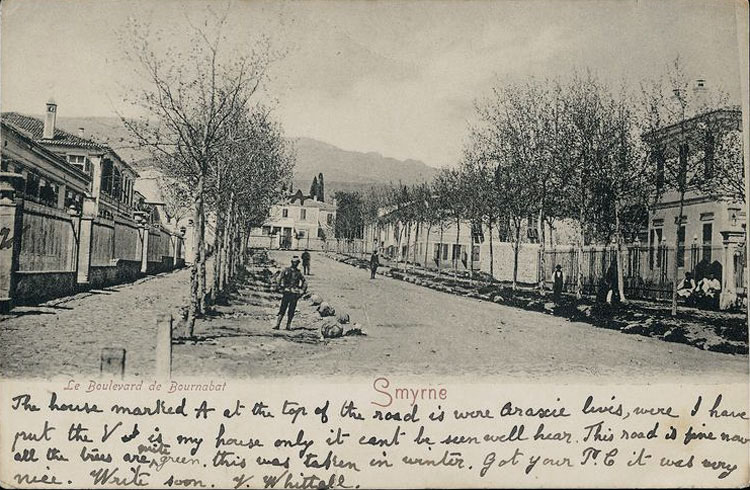 Le Boulevard de Bournabat
Smyrne
The house marked A at the top of the road is were Araxie livis, were I have
put the V it is my house only it cant be seen well hear. This road is fine now
all the trees are quite green. this was taken in winter. Got your P.C it was very
nice. Write soon. V. Whittall.